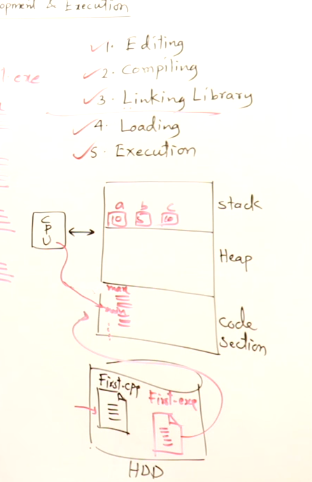 opment & Execution
1. Editing
2. Compiling
3. Linking Library
4. Loading
5. Execution
a b c
10 5
stack
CPU
Heap
main
code
section
First.cpp
First.exe
HDD